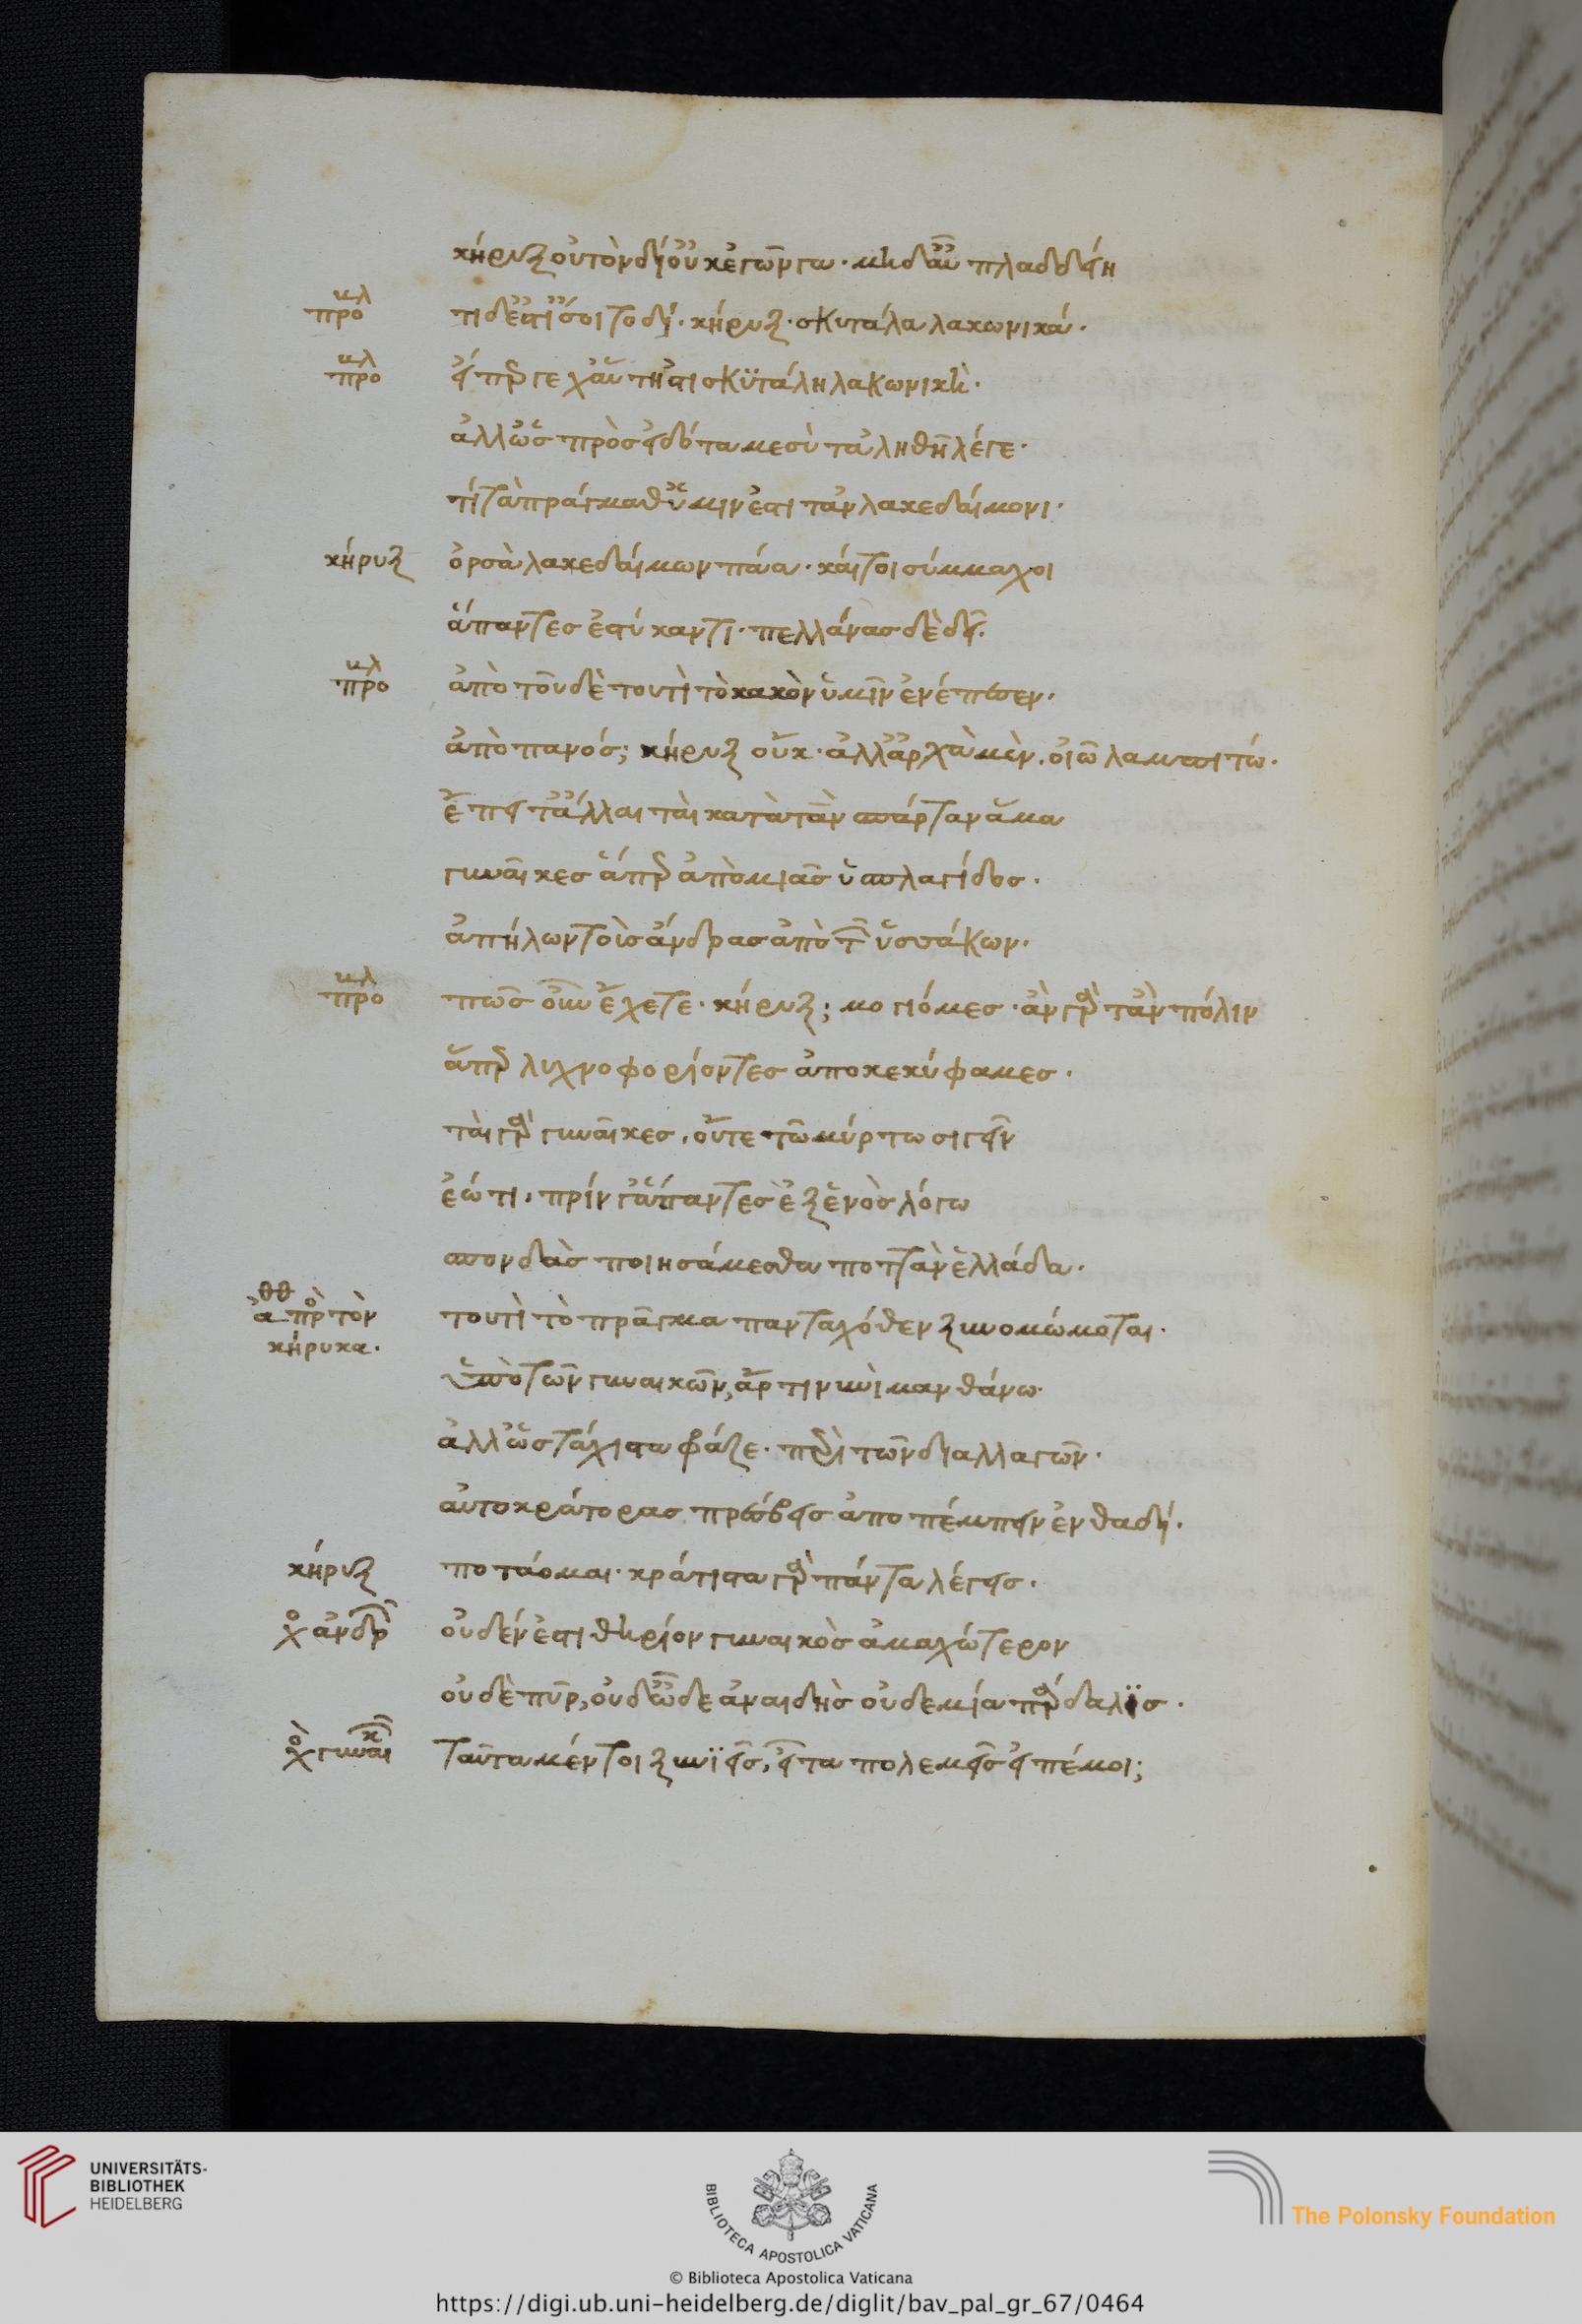 κήρυξ οὐ τὸν δί οὐκ ἐγῶνγα· μηδ αὖ πλαδδίη
προβλ τί δ ἐστί σοι τοδί· κήρυξ· σκυτάλα λακωνικά·
προβλ εἴπερ γε χ αὕτη ἐστι σκϋτάλη λακωνική·
ἀλλ ὡς πρὸς εἰδότα με σὺ τἀληθῆ λέγε·
τί τὰ πράγμαθ ὑμῖν ἐστι τἀν λακεδαίμονι·
κήρυξ ὀρσὰ λακεδαίμων πάα· καί τοι σύμμαχοι
ἅπαντες ἐστύκαντι· πελλάνας δὲ δεῖ·
προβλ ἀπὸ τοῦ δὲ τουτὶ τὸ κακὸν ὑμῖν ἐνέπεσεν·
ἀπὸ πανός; κήρυξ οὔκ· ἀλλ ἄρχα μὲν, οἰῶ λαμπιτώ·
ἔπει τἄλλαι ταὶ κατὰ τὰν σπάρταν ἅμα
γυναῖκες ἅπερ ἀπὸ μιᾶς ὑσπλαγίδος·
ἀπήλων τοὶς ἄνδρας ἀπὸ τῶν ὑσσάκων·
προβλ πῶς οὖν ἔχετε· κήρυξ; μογιόμες· ἂν γὰρ τὰν πόλιν
ἅπερ λυχνοφορίοντες ἀποκεκύφαμες·
ταὶ γὰρ γυναῖκες, οὔτε τῶ μύρτω σιγεῖν
ἐώτι, πρίν γ ἅπαντες ἐξ ἑνὸς λόγω
σπονδὰς ποιησάμεσθα ποττὰν ἑλλάδα·
ἀθθ πρὸς τὸν κήρυκα· τουτὶ τὸ πρᾶγμα πανταχόθεν ξυνομώμοται·
ὑπὸ τῶν γυναικῶν, ἄρτι νυνὶ μανθάνω·
ἀλλ ὡς τάχιστα φράζε· περὶ τῶν διαλλαγῶν·
αὐτοκράτορας πρέσβεις ἀποπέμπειν ἐνθαδί·
κήρυξ ποτάομαι· κράτιστα γὰρ πάντα λέγεις·
χο ἀνδρῶν οὐδέν ἐστι θηρίον γυναικὸς ἀμαχώτερον
οὐδὲ πῦρ, οὐδ ὧδε ἀναιδὴς οὐδεμία πάρδαλϊς·
χο γυναικῶν ταῦτα μέντοι ξυνϊεῖς, εἶτα πολεμεῖς εἰπέ μοι;
UNIVERSITÄTS-
BIBLIOTHEK
HEIDELBERG
BIBLIOTECA APOSTOLICA VATICANA
The Polonsky Foundation
© Biblioteca Apostolica Vaticana
https://digi.ub.uni-heidelberg.de/diglit/bav_pal_gr_67/0464